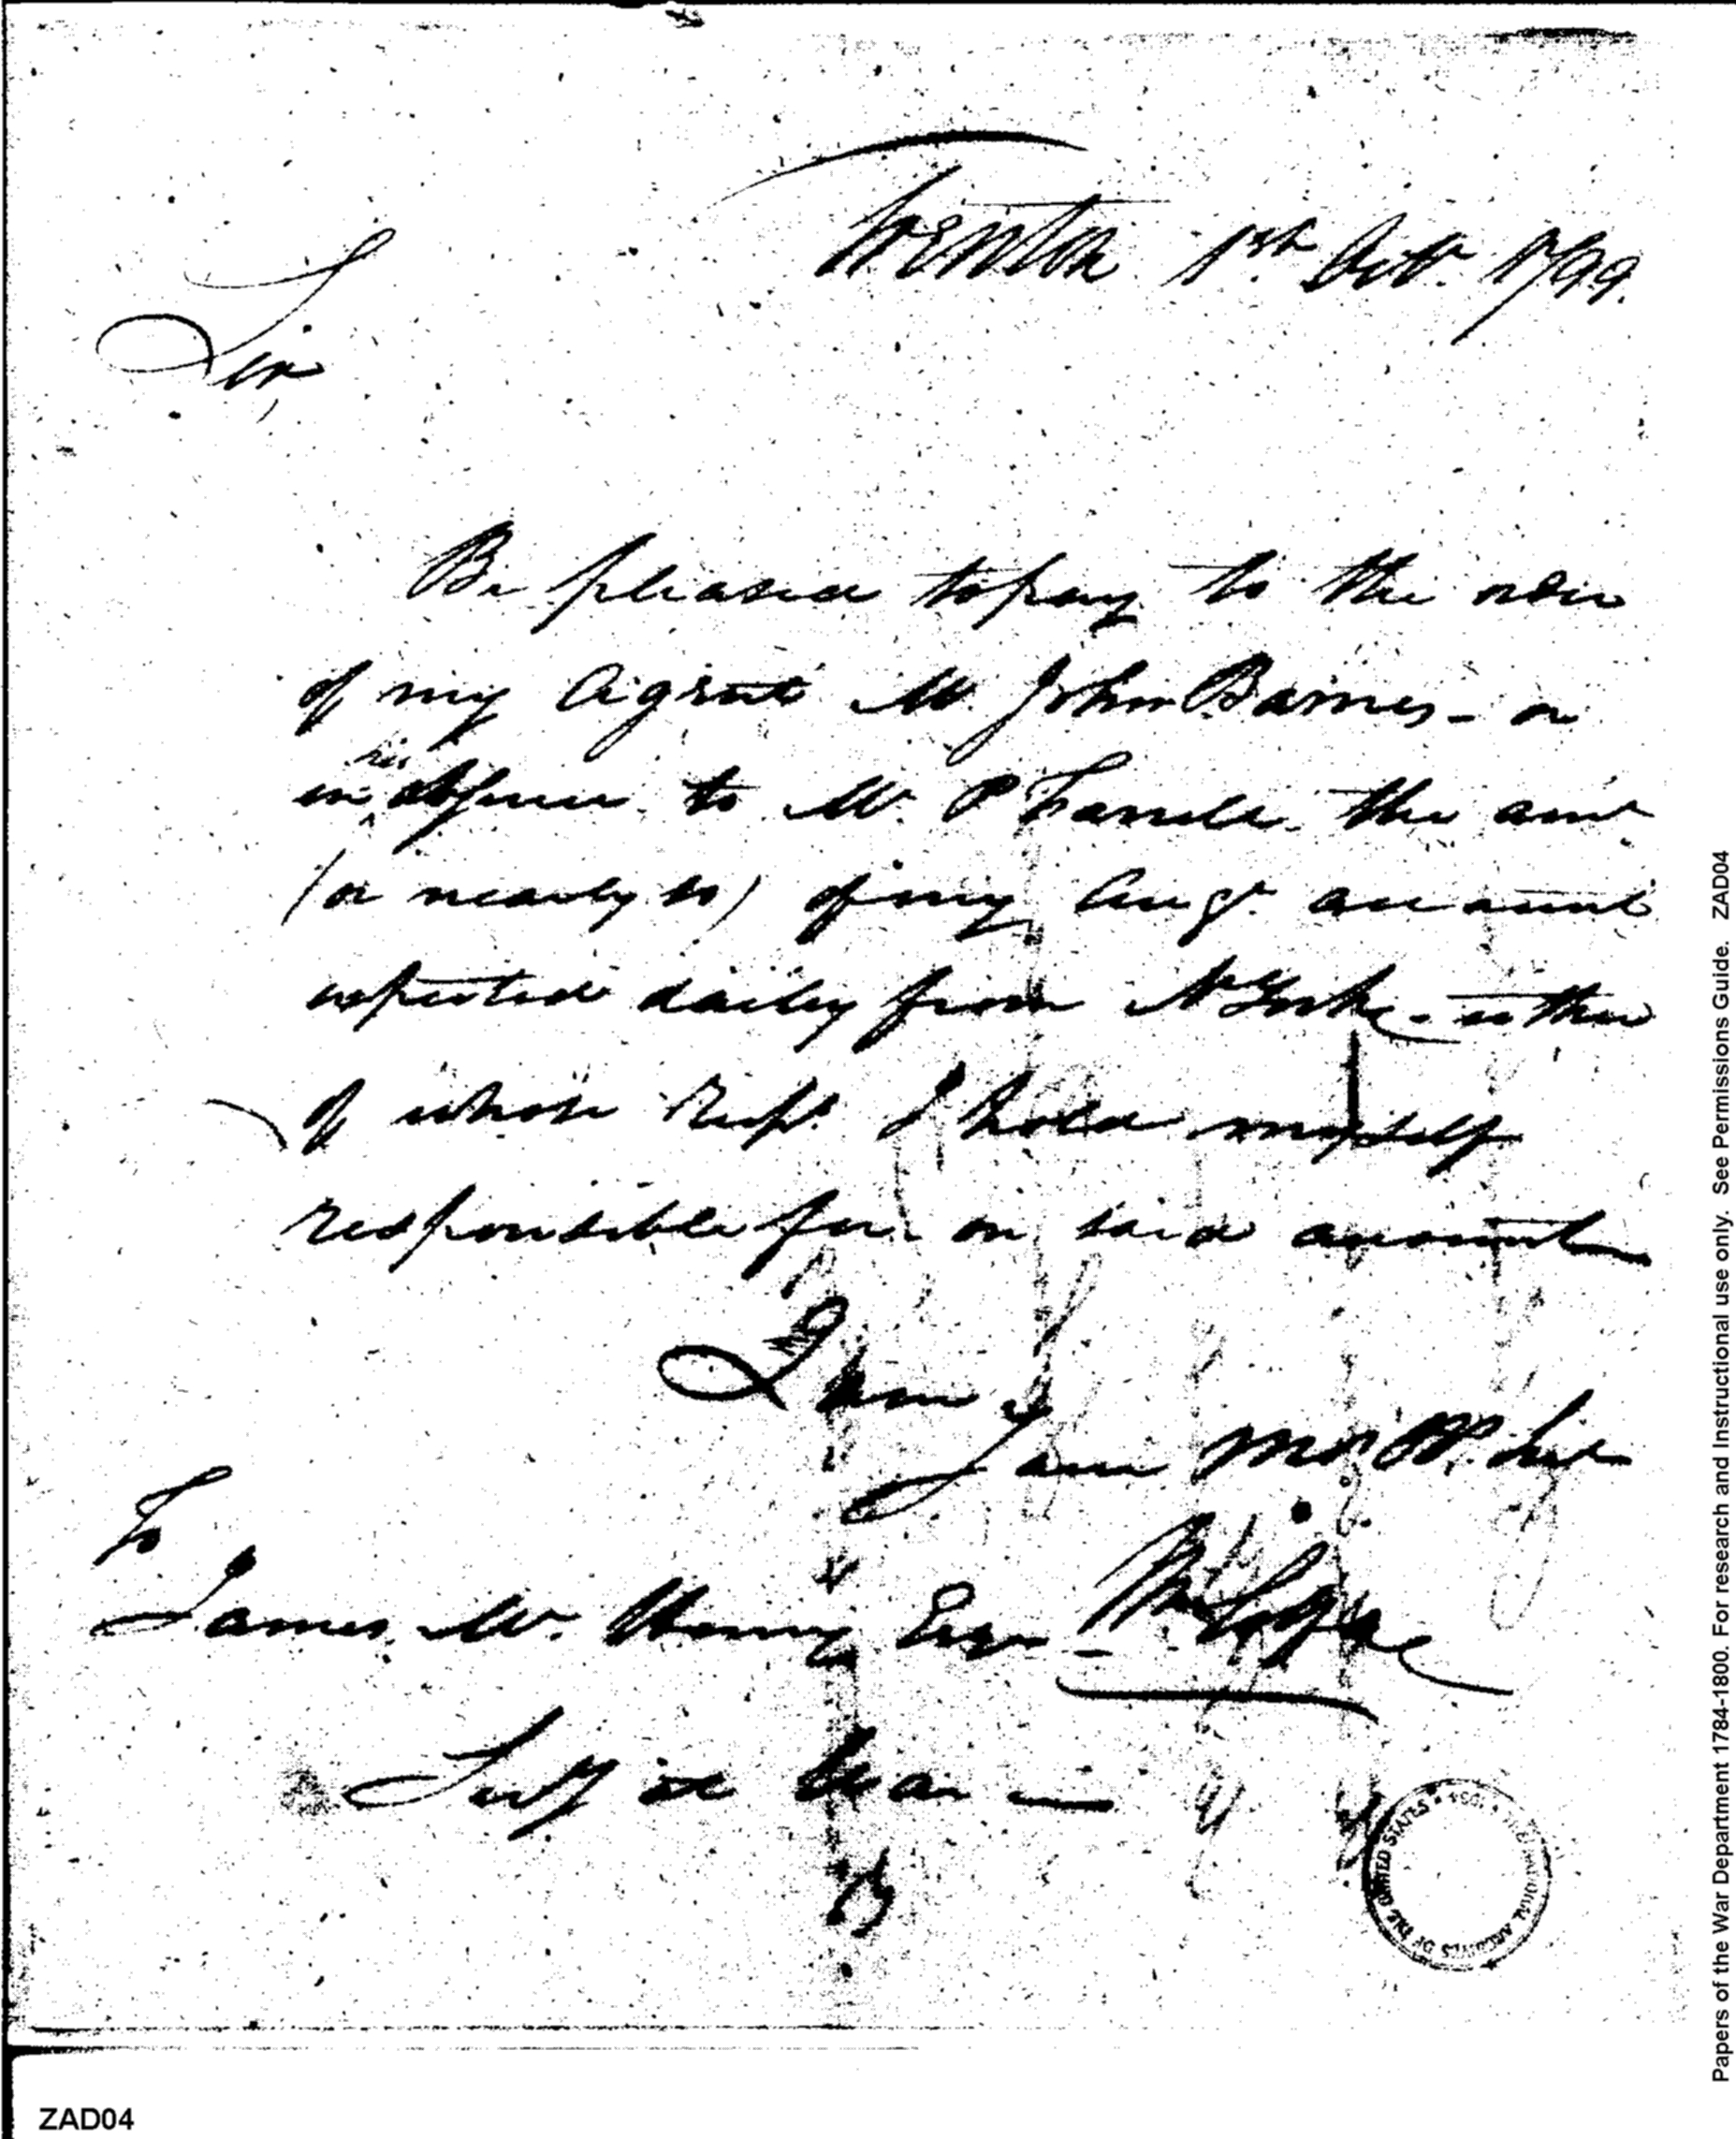 Trenton 1st Octr. 1799.
Sir
Be pleased to pay to the order
of my Agent Mr. John Barnes - or
in his absence to Mr. P the amt
(or nearly so) of my Augt. account
expected daily from N York - either
of whose rect. I hold myself
responsible for on said account
I am
I am
To
James Mc. Henry Esqr
Secy of War
ZAD04
Papers of the War Department 1784-1800. For research and Instructional use only. See Permissions Guide. ZAD04